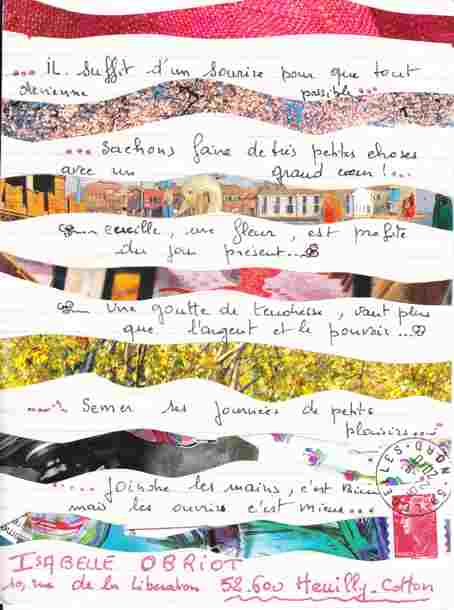 ... il suffit d'un sourire pour que tout
devienne possible...
... Sachons faire de très petites choses
avec un grand cœur !...
... cueille, une fleur, est profite
du jour présent...
... Une goutte de tendresse, vaut plus
que l'argent et le pouvoir...
... Semer ses journées de petits
plaisirs...
... Joindre les mains, c'est Bien
mais les ouvrir c'est mieux...
ISABELLE OBRIOT
10, rue de la Liberation 52.600 Heuilly-Cotton